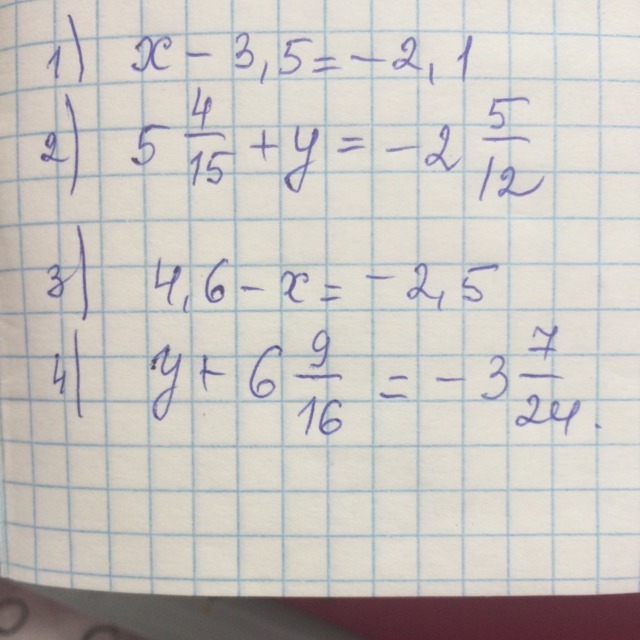 1) x - 3,5 = -2,1
2) 5 4/15 + y = -2 5/12
3) 4,6 - x = -2,5
4) y + 6 9/16 = -3 7/24.